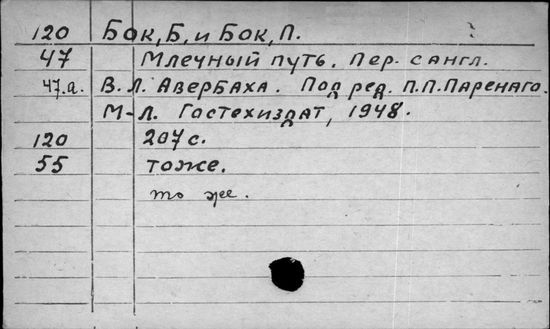 120 Бок, Б. и Бок, П.
47 Млечный путь. Пер. с англ.
47.а. В. Л. Авербаха. Под ред. П.П. Паренаго.
М-Л. Гостехиздат, 1948.
120 207 с.
55 тоже.
то же.